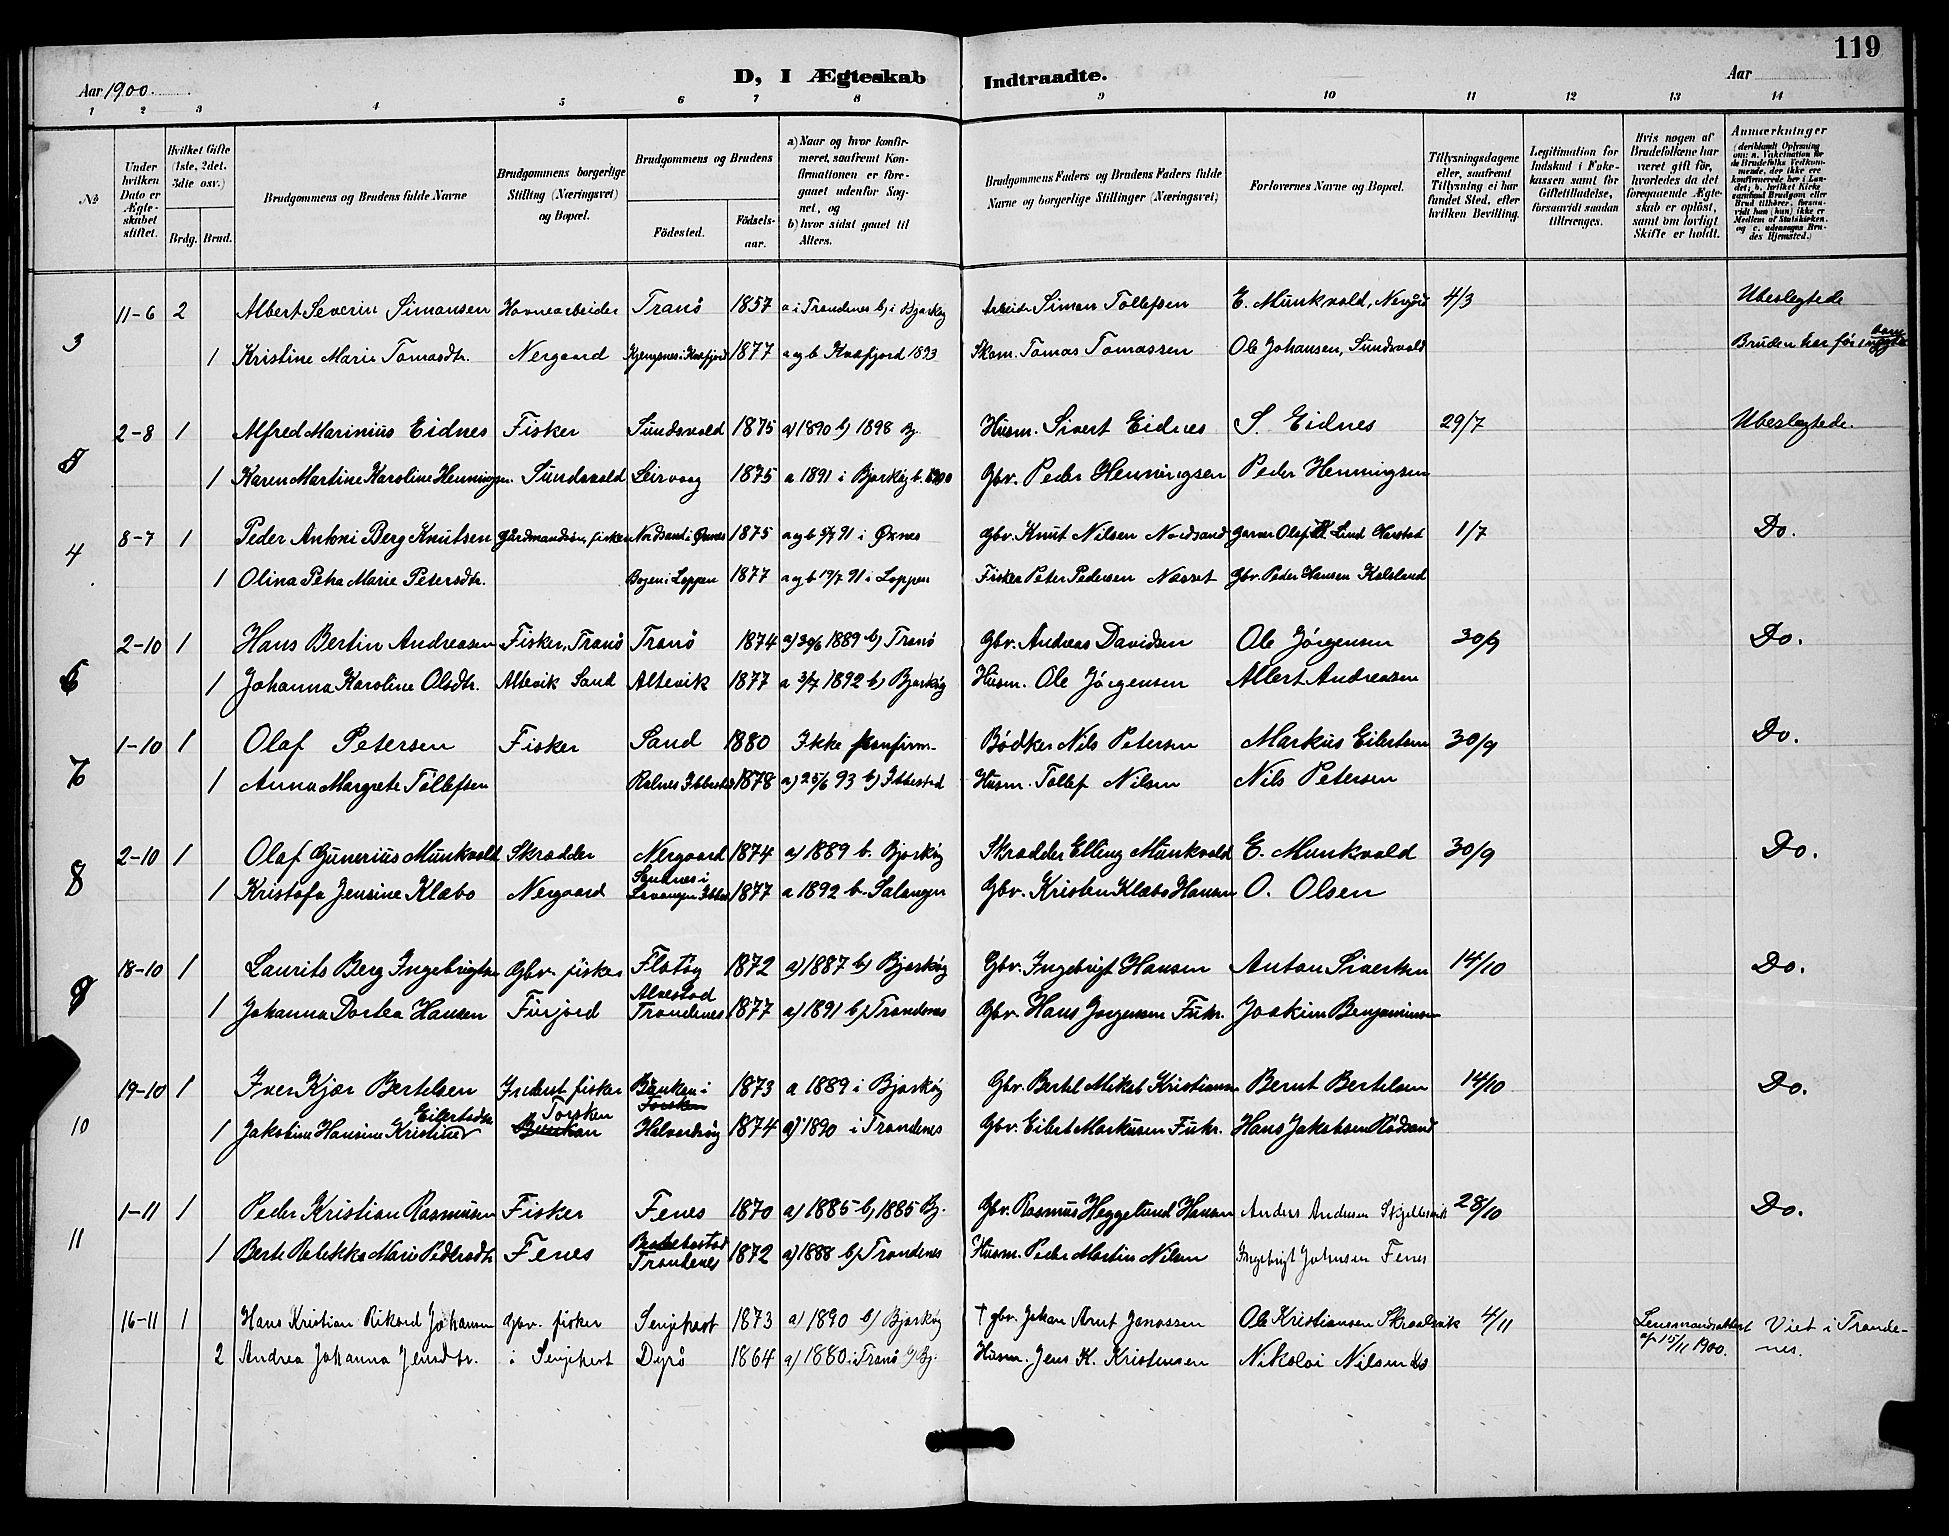 119
Aar 1900. D, I Ægteskab Indtraadte. Aar
1 2 3 4 5 6 7 8 9 10 11 12 13 14
№
Under hvilken Dato er Ægteskabet stiftet.
Hvilket Gifte (1ste, 2det, 3die osv.)
Brdg. Brud.
Brudgommens og Brudens fulde Navne
Brudgommens borgerlige Stilling (Næringsvei) og Bopæl.
Brudgommens og Brudens
Födested. Födselsaar.
a) Naar og hvor konfirmeret, saafremt Konfirmationen er foregaaet udenfor Sognet, og b) hvor sidst gaaet til Alters.
Brudgommens Faders og Brudens Faders fulde Navne og borgerlige Stillinger (Næringsvei)
Forlovernes Navne og Bopæl.
Tillysningsdagene eller, saafremt Tillysning ei har fundet Sted, efter hvilken Bevilling.
Legitimation for Indskud i Enkekassen samt for Giftetilladelse, forsaavidt saadan tiltrænges.
Hvis nogen af Brudefolkene har været gift før, hvorledes da det foregaaende Ægteskab er opløst, samt om lovligt Skifte er holdt.
Anmærkninger (deriblandt Oplysning om: a. Vakcination for de Brudefolks Vedkommende, der ikke ere konfirmerede her i Landet; b. hvilket Kirkesamfund Brudgom eller Brud tilhører, forsaavidt han (hun) ikke er Medlem af Statskirken, og c. udensogns Brudes Hjemsted.)
3 11-6 2 Albert Severin Simonsen Havnearbeider Tranö 1857 a i Trondenes b) i Bjarköy Arbeider Simon Tollefsen E. Munkvold, Nergård 4/3 Ubeslegtede
1 Kristine Marie Tomasdtr. Nergaard Kjengsnes i Kvæfjord 1877 a og b Kvæfjord 1893 Skom. Tomas Tomassen Ole Johansen, Sundsvold Bruden har før
5 2-8 1 Alfred Marinius Eidnes Fisker Sundsvold 1875 a) 1890 b) 1898 Bj. Husm. Sivert Eidnes S. Eidnes 29/7 Ubeslegtede.
1 Karen Martine Karoline Henningsn. Sundsvold Leirvaag 1875 a 1891 i Bjarköy b. 1900 Gbr. Peder Henningsen Peder Henningsen
4 8-7 1 Peder Antoni Berg Knutsen Gårdmandssøn, fisker Nordsand i Øxnes 1875 a og b 5/7 91 i Øxnes Gbr. Knut Nilsen Nordsand Garver Olaf Lind Harstad 1/7 Do.
1 Olina Petra Marie Petersdtr. Bogen i Loppen 1877 a og b 19/7 91 i Loppen Fisker Peter Pedersen Næsset Gbr. Peder Hansen Kalsland
6 2-10 1 Hans Bertin Andreasen Fisker, Tranö Tranö 1874 a) 30/6 1889 b) Tranö Gbr. Andreas Davidsen Ole Jörgensen 30/9 Do.
1 Johanna Karoline Olsdtr. Altevik Sand Altevik 1877 a 3/7 1892 b) Bjarköy Husm. Ole Jörgensen Albert Andreasen
7 1-10 1 Olaf Petersen Fisker Sand 1880 Ikke konfirm. Bödker Nils Petersen Markus Eilertsen 30/9 Do.
1 Anna Margrete Tollefsen Rolnes Ibbestad 1878 a) 25/6 93 b) Ibbestad Husm. Tollef Nilsen Nils Petersen
8 2-10 1 Olaf Gunerius Munkvold Skrædder Nergaard 1874 a) 1889 b. Bjarköy Skrædder Elling Munkvold E. Munkvold 30/9 Do.
1 Kristofa Jensine Klæbo Nergaard 1877 a 1892 b. Salangen Gbr. Kristen Klæbo Hansen O. Olsen
9 18-10 1 Laurits Berg Ingebrigtsn Gbr. fisker Flatöy 1872 a) 1887 b) Bjarköy Gbr. Ingebrigt Hansen Anton Sivertsen 14/10 Do.
1 Johanna Dortea Hansen Furjord Alvestad Trondenes 1877 a) 1891 b) Trondenes Gbr. Hans Jorgensen Fuhr. Joakim Benjaminsen
10 19-10 1 Iver Kjær Bertelsen Inderst fisker Bunkan i Torsken 1873 a 1889 i Bjarköy Gbr. Bertel Mikal Kristiansen Bernt Bertelsen 14/10 Do.
1 Jakobine Hansine Kristine Eilertsdtr Torsken Bunkan Halvardsöy 1874 a) 1890 i Trondenes Gbr. Eilert Markusen Fuhr. Hans Jakobsen Rödsand
11 1-11 1 Peder Kristian Rasmusen Fisker Fenes 1870 a) 1885 b) 1885 Bj. Gbr. Rasmus Heggelund Hansen Anders Andersen Skjellesvik 28/10 Do.
1 Berte Rebekka Marie Pedersdtr Fenes Trondenes 1872 a) 1888 b) Trondenes Husm. Peder Martin Nilsen Ingebrigt Johnsen Fenes
16-11 1 Hans Kristian Rikard Johansen gbr. fisker Senjehest 1873 a) 1890 b) Bjarköy † gbr. Johan Arnt Jonassen Ole Kristiansen Skrolsvik 4/11 Lensmandsattest af 15/11 1900. Viet i Trondenes.
2 Andrea Johanna Jensdtr. i Senjehest Dyrö 1864 a) 1880 i Tranö b) Bj. Husm. Jens K. Kristensen Nikolai Nilsen Do